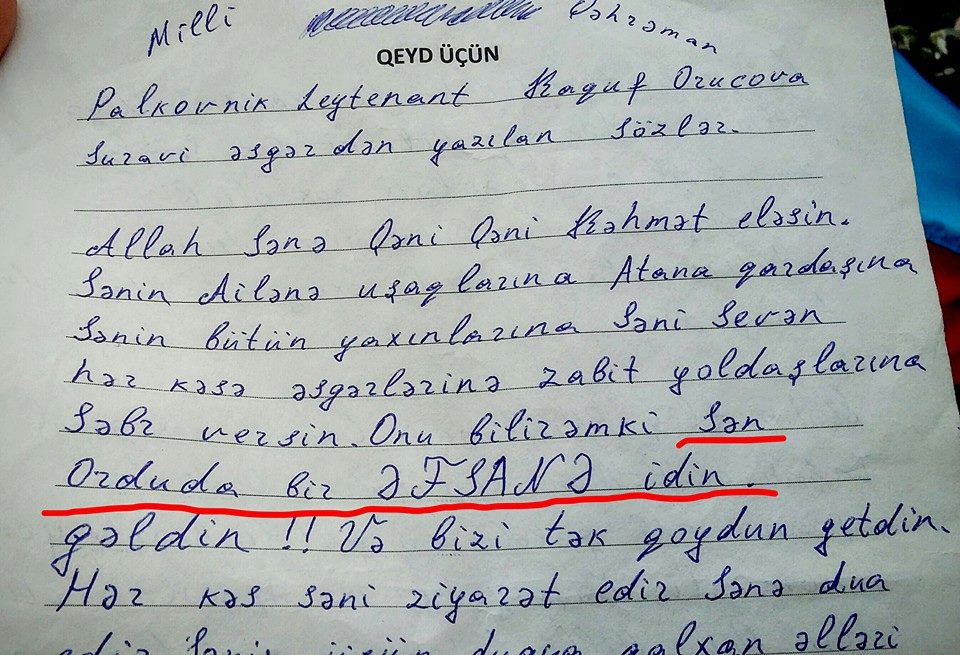 Milli Qəhrəman
QEYD ÜÇÜN
Palkovnik Leytenant Raquf Orucova
Suravi əsgər dən yazılan sözlər.
Allah Sənə Qəni Qəni Rəhmət eləsin.
Sənin Ailənə uşaqlarına Atana qardaşına
Sənin bütün yaxınlarına Səni Sevən
hər kəsə əsgərlərinə zabit yoldaşlarına
Səbr versin. Onu bilirəmki Sən
Orduda bir ƏFSANƏ idin.
gəldin !! Və bizi tək qoydun getdin.
Hər kəs səni ziyarət edir Sənə dua
edir Sənin üçün duaya qalxan əlləri